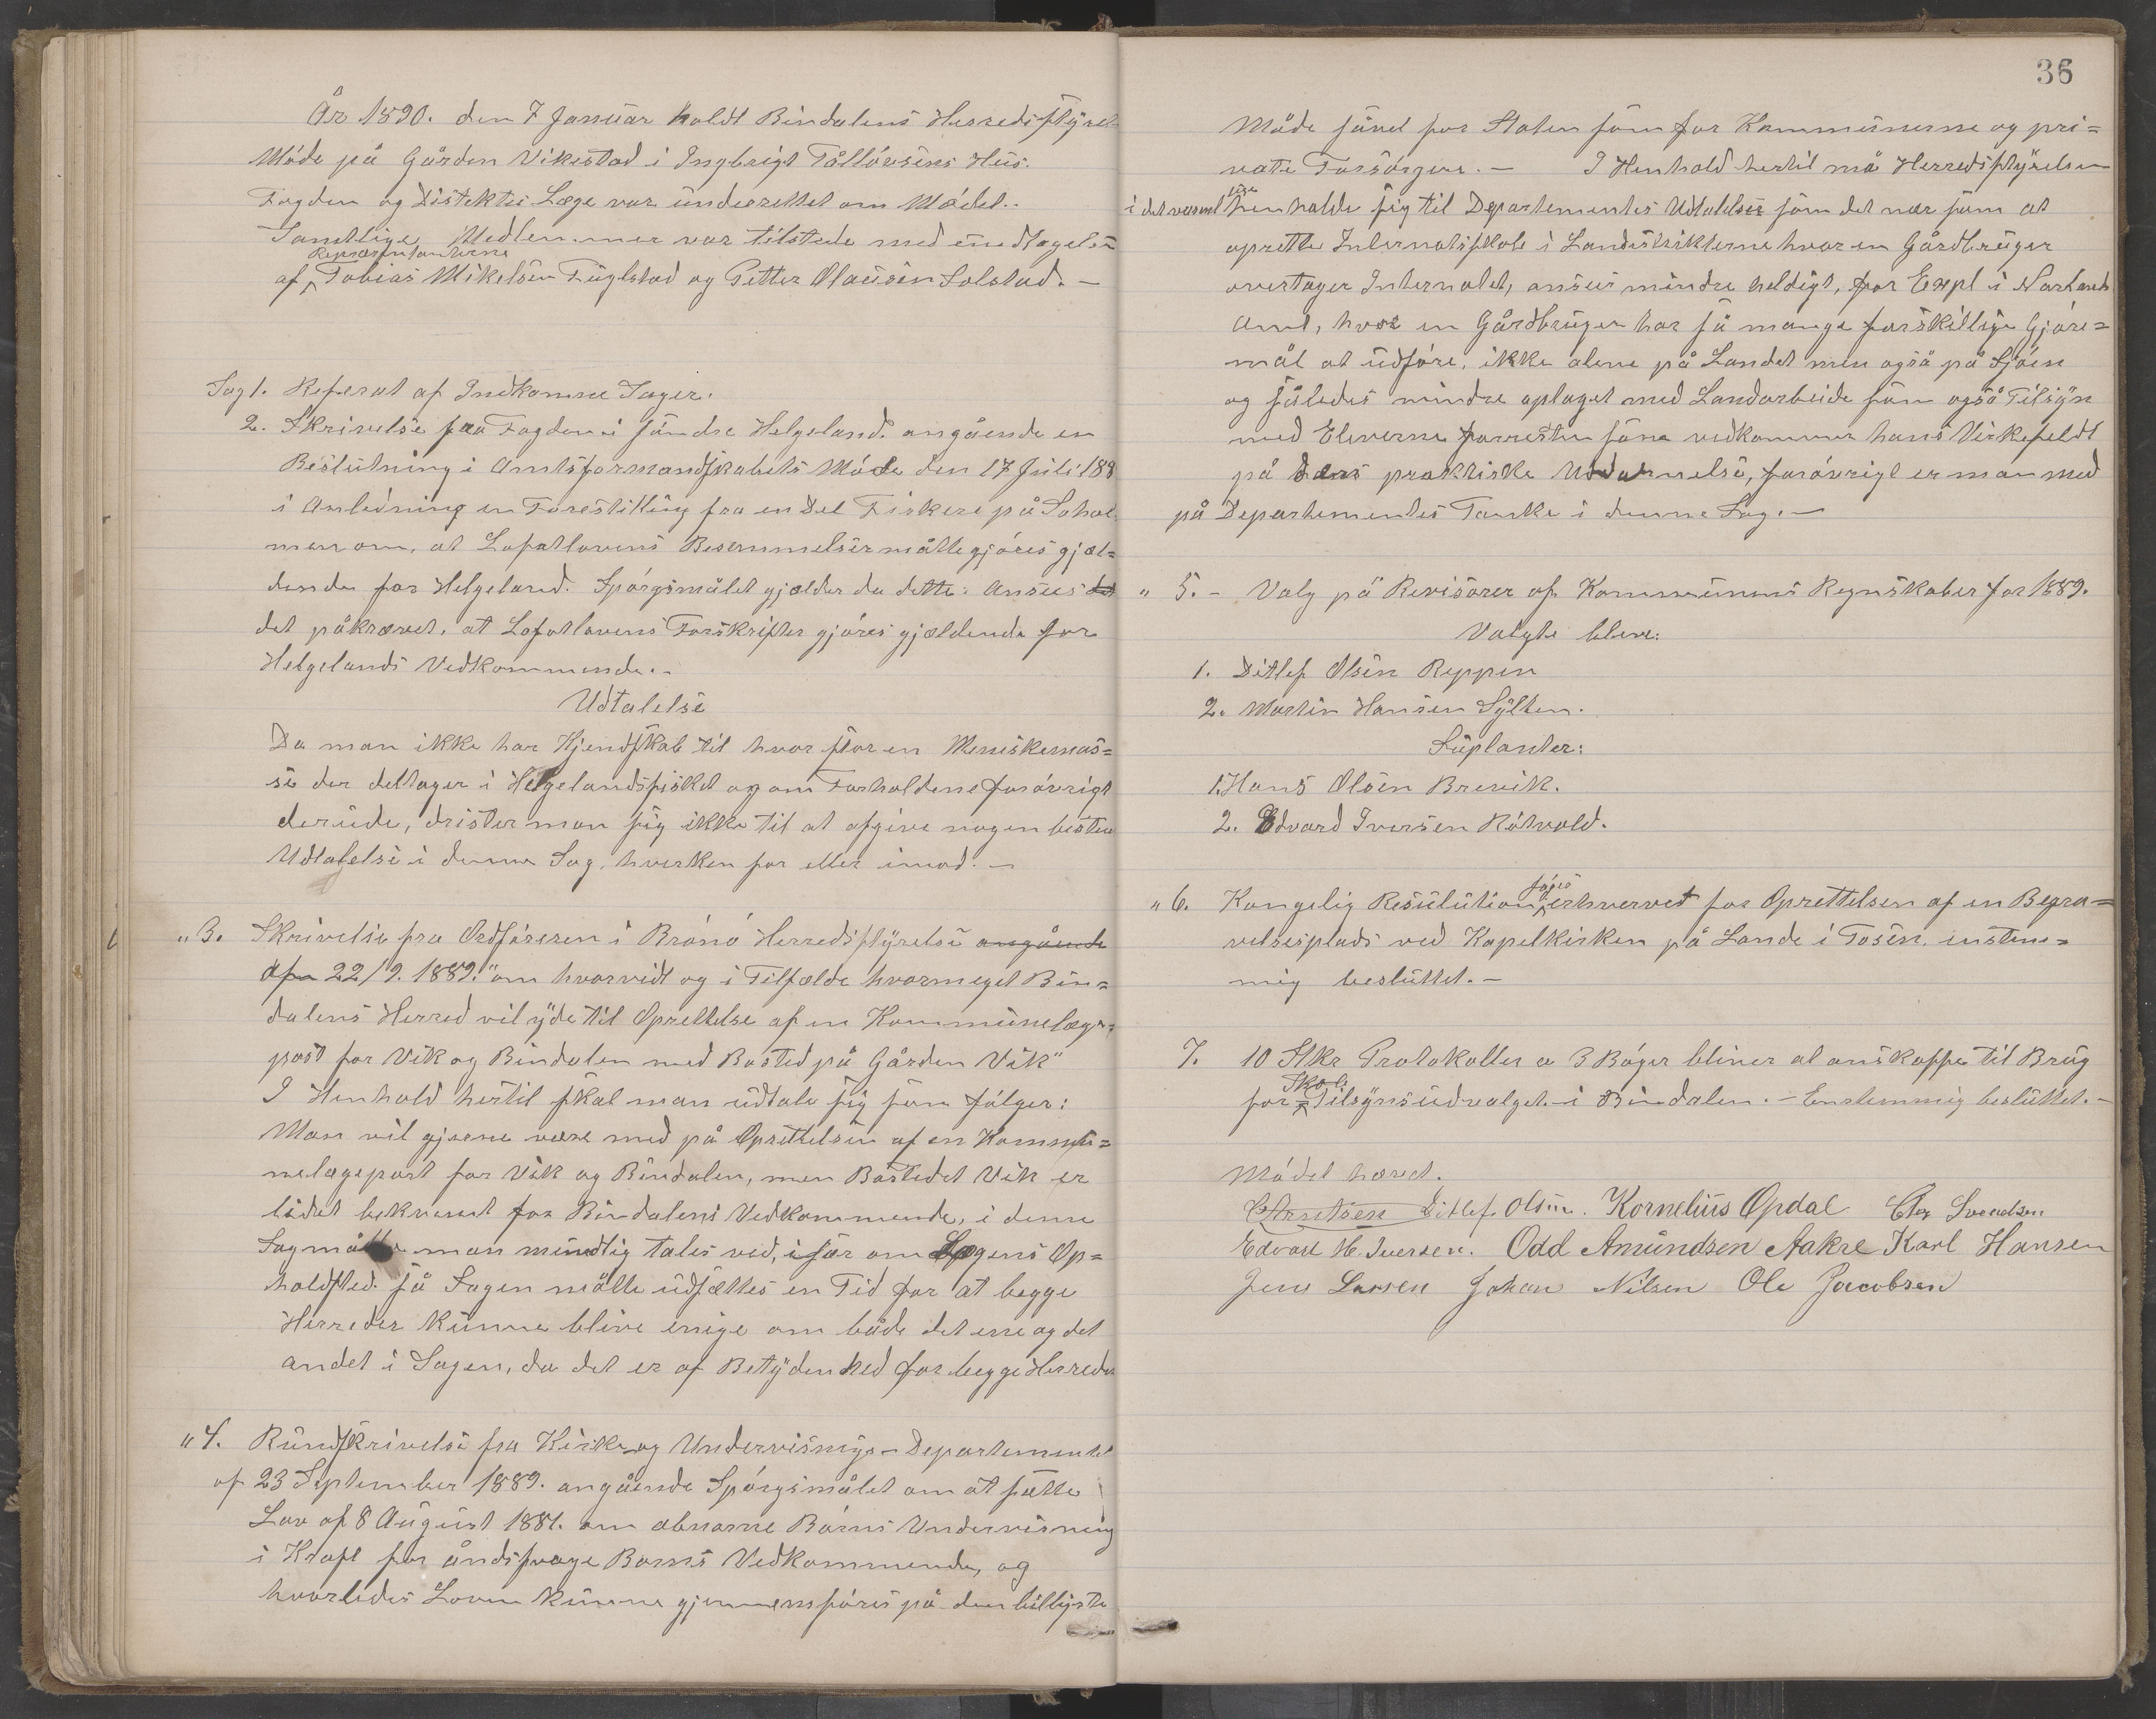 År 1890. den 7 Januar holdt Bindalens Herredsstyrel-
Møde på Gården Vikestad i Ingbrigt Tålløvsens Hus.
Fogden og Distrikts Læge var underrettet om Mødet.-
Samtlige Medlemmer var tilstede med undtagelse
Repræsentanterne
af Tobias Mikelsen Fuglstad og Petter Olausen Solstad. -
Sag 1. Referat af Indkomne Sager.
2. Skrivelse fra Fogden i søndre Helgeland. angående en
Beslutning i Amtsformandskabets Møde den 17 Juli 188
i Anledning en Forestilling fra en Del Fiskere på Sohol-
men om, at Lofotlovens Besemmelser måtte gjøres gjæl=
dende for Helgeland. Spørgsmålet gjælder da dette: Ansees det
det påkrævet, at Lofotlovens Forskrifter gjøres gjældende for
Helgelands Vedkommende.-
Udtalelse
Da man ikke har Kjendskab til hvor stor en Meniskemas=
se der deltager i Helgelandsfisket og om Forholdene forøvrigt
derude, drister man sig ikke til at afgive nogen bestem
Udtalelse i denne Sag, hverken for eller imod. -
" 3. Skrivelse fra Ordføreren i Brønø Herredsstyrelse angående
af 22/9. 1889. "om hvorvidt og i Tilfælde hvormeget Bin=
dalens Herred vil yde til Oprettelse af en Kommunelæge-
post for Vik og Bindalen med Bosted på Gården Vik"
I Henhold hertil skal man udtale sig som følger:
Man vil gjerne være med på Oprettelsen af en Kommu=
nelægepost for Vik og Bindalen, men Bostedet Vik er
lidet bekvemt for Bindalens Vedkommende, i denne
Sag måtte man mundtlig tales ved, især om Lægens Op=
holdsted. så Sagen måtte udsættes en Tid for at begge
Herreder kunne blive enige om både det ene og det
andet i Sagen, da det er af Betydenhed for begge Herreder
" 4. Rundskrivelse fra Kirke og Undervisnings-Departementet
af 23 September 1889. angående Spørgsmålet om at sætte
Lov af 8 August 1881. om abnorme Børns Undervisning
i Kraft for åndssvage Børns Vedkommende, og
hvorledes Loven kunne gjennemføres på den billigste
36
Måde såvel for Staten som for Kommunerne og pri=
vate Forsørgere. - I Henhold hertil må Herredsstyrelsen
i det væsentlige henholde sig til Departementes Udtalelse som det nær som at
oprette Internatskole i Landistrikterne hvor en Gårdbruger
overtager Internatet, ansees mindre heldigt, for Expl i Nordlands
Amt, hvor en Gårdbruger har så mange forskillige Gjøre=
mål at udføre, ikke alene på Landet men også på Sjøen
og således mindre optaget med Landarbeide som også Tilsyn
med Eleverne forresten søne vedkommer hans Virkefeldt
på dens praktiske Uddannelse, forøvrigt er man med
på Departementes Tanke i denne Sag. -
" 5. - Valg på Revisorer af Kommunens Regnskaber for 1889.
Valgte bleve:
1. Ditlef Olsen Reppen
2. Martin Hansen Sylten.
Suplanter:
1. Hans Olsen Brevik.
2. Edvard Iversen Røtvold.
" 6. Kongelig Resulution søges erhvervet for Oprettelsen af en Begra=
velsesplads ved Kapelkirken på Lande i Tosen. enstem=
mig besluttet. -
7. 10 Stkr Protokoller a 3 Bøger bliver at anskaffe til Brug
for Skole Tilsynsudvalget i Bindalen. - Enstemmig besluttet. -
Mødet hævet.
C Arntsen Ditlef Olsen. Kornelius Opdal Chr Svendsen
Edvard H. Iversen. Odd Amundsen Aakre Karl Hansen
Jens Larsen Johan Nilsen Ole Jacobsen